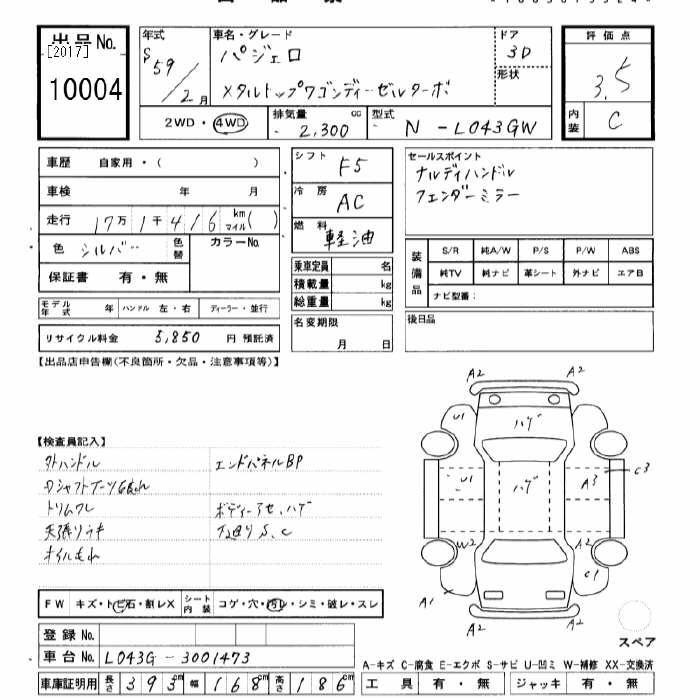 出品No.
[2017]
10004
年式
S59/2月
車名・グレード
パジェロ
メタルトップワゴンディーゼルターボ
ドア
3D
形状
評価点
3.5
内装
C
2WD・4WD
排気量
2,300 cc
型式
N-L043GW
車歴 自家用・( )
車検 年 月
走行 17万1千416 km マイル( )
色 シルバー 色替 カラーNo.
保証書 有・無
シフト
F5
冷房
AC
燃料
軽油
乗車定員 名
積載量 kg
総重量 kg
セールスポイント
ナルディハンドル
フェンダーミラー
装備品
S/R 純A/W P/S P/W ABS
純TV 純ナビ 革シート 外ナビ エアB
ナビ型番:
モデル年式 年 ハンドル 左・右 ディーラー・並行
リサイクル料金 5,850 円 預託済
名変期限
月 日
後日品
【出品店申告欄(不良箇所・欠品・注意事項等)】
【検査員記入】
外ハンドル
エンドパネルBP
トリムワレ
ボディーアセ、ハゲ
下廻りS、C
オイルもれ
A2 A2
U1 ハゲ
U1 ハゲ A3 C3
W2 A2
A1 C1
A2 A2
スペア
FW キズ・トビ石・割レX シート内装 コゲ・穴・汚レ・シミ・破レ・スレ
登録No.
車台No. L043G-3001473
A-キズ C-腐食 E-エクボ S-サビ U-凹ミ W-補修 XX-交換済
車庫証明用 長さ 393cm 幅 168cm 高さ 186cm
工具 有・無 ジャッキ 有・無